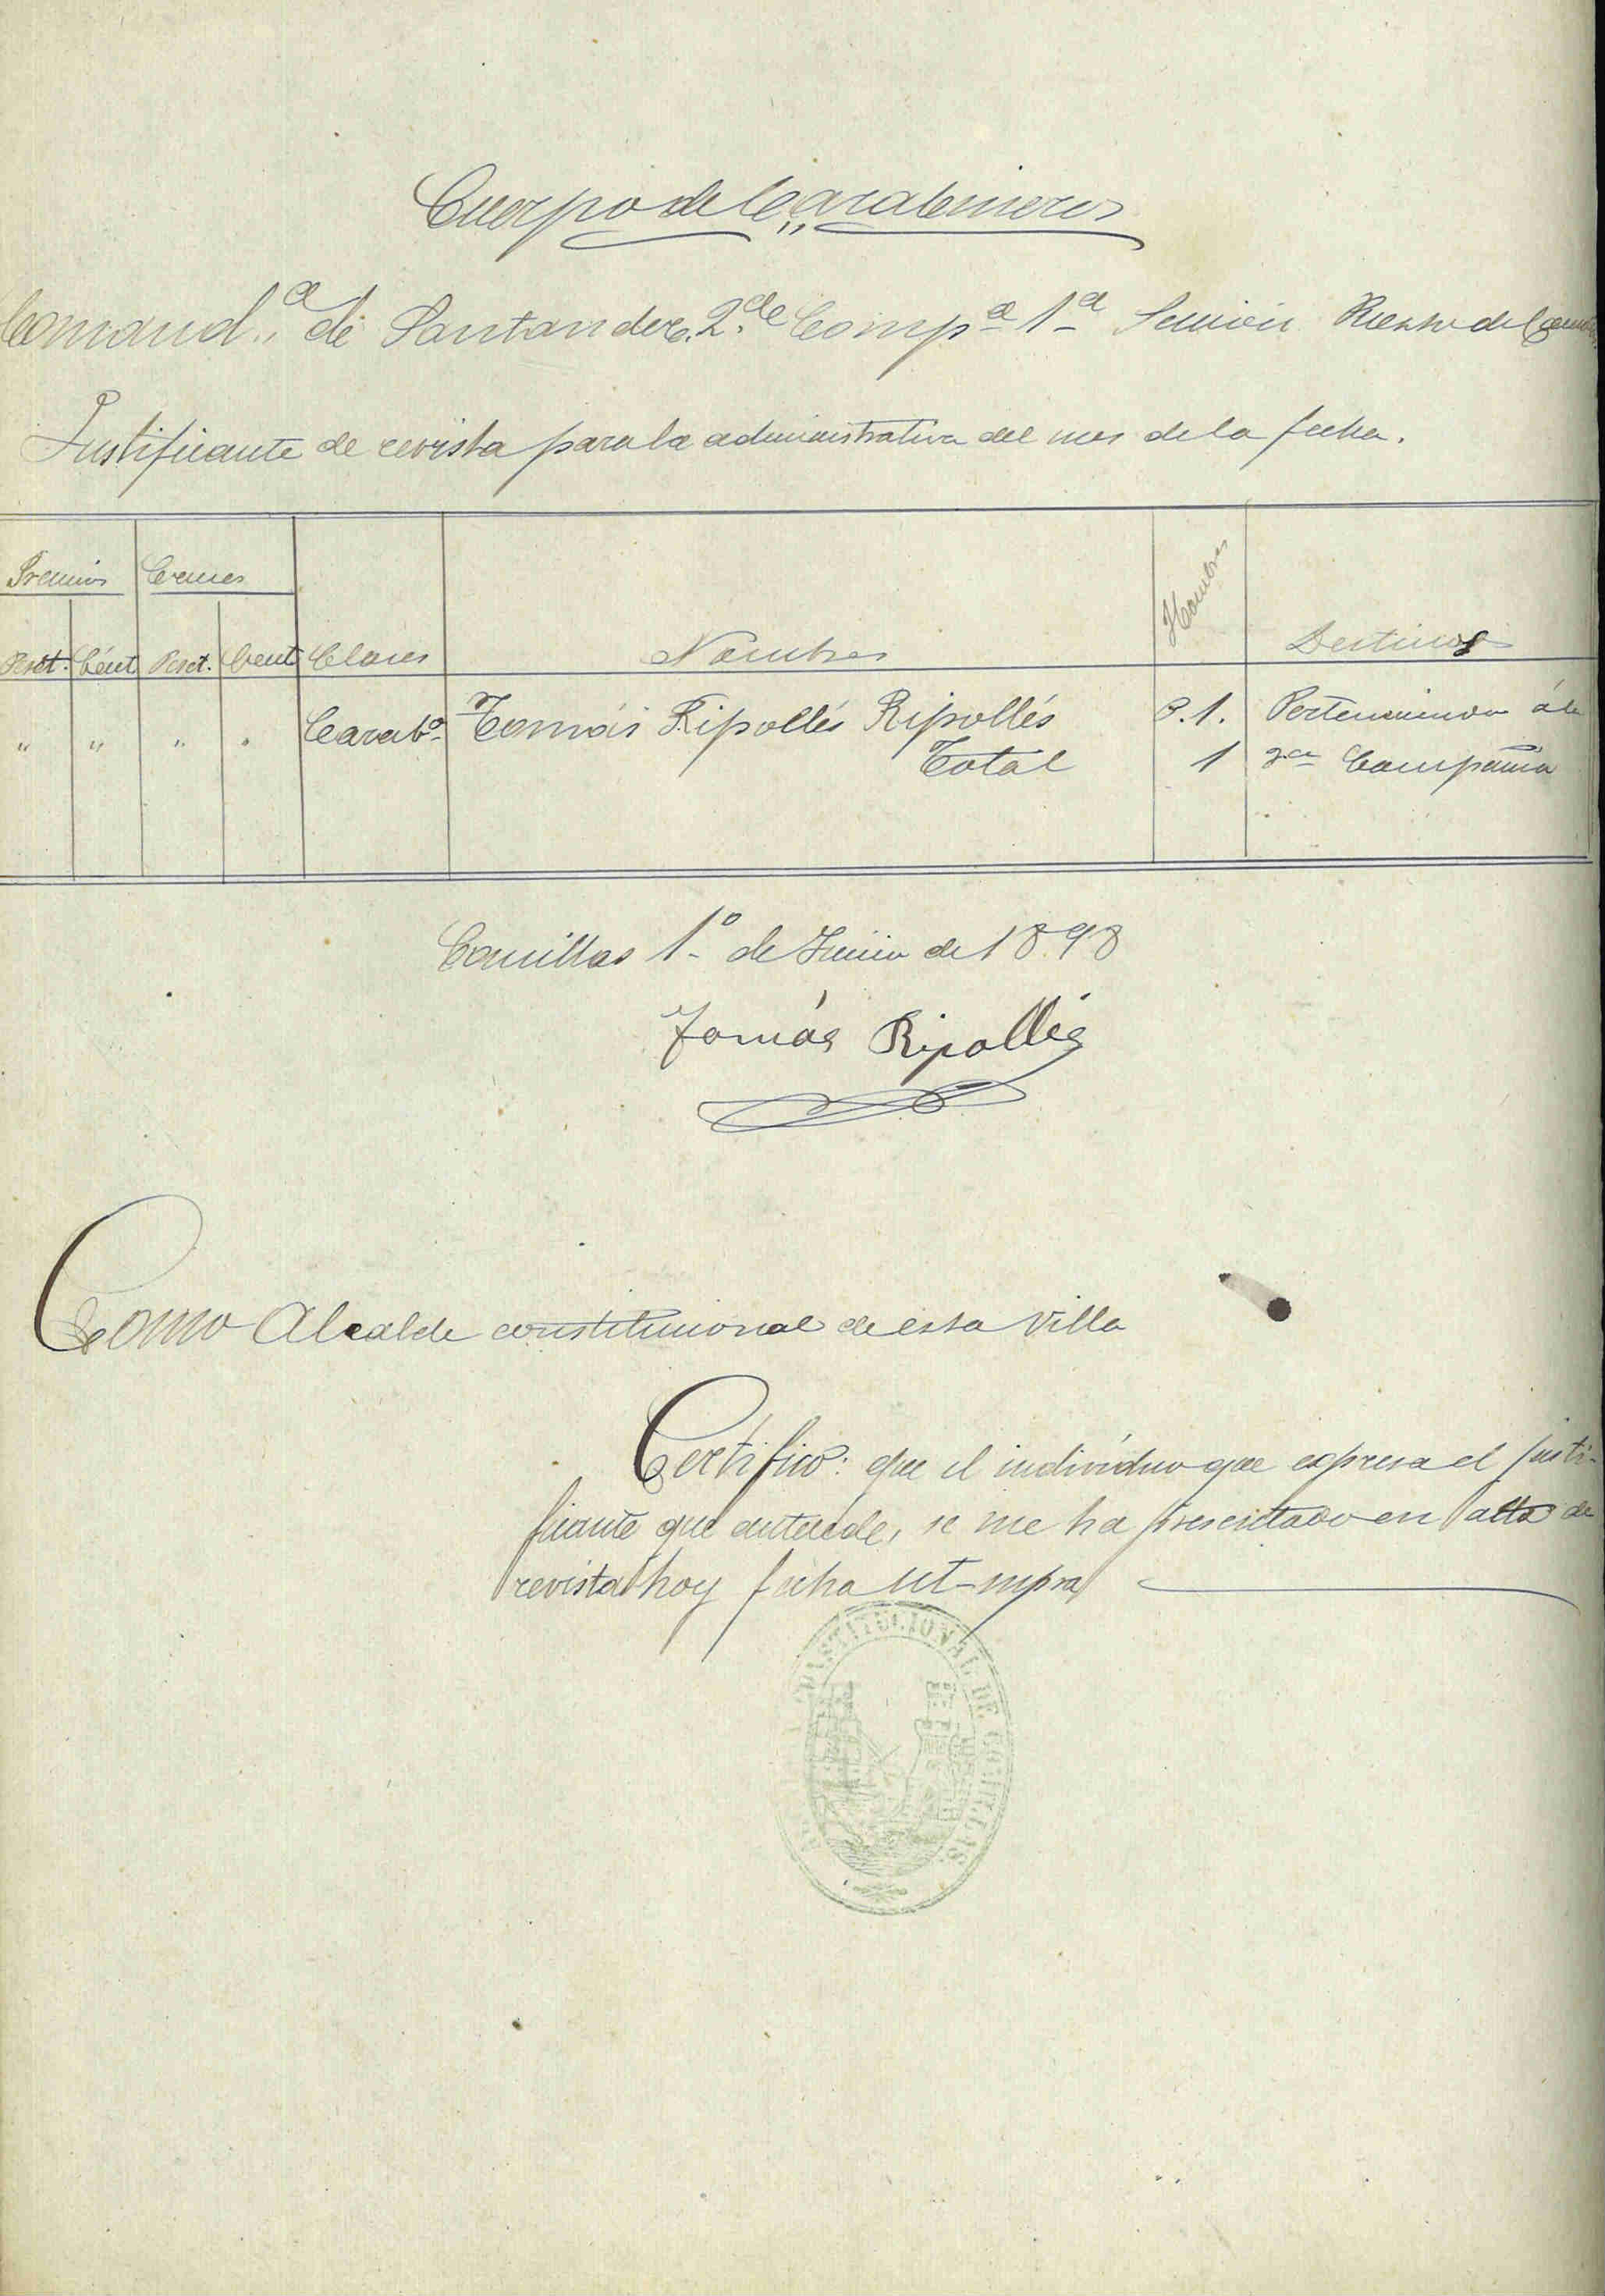 Cuerpo de Carabineros
Comand.ª de Santander. 2.ª Compª 1ª Sección Puesto de
Justificante de revista para la administrativa del mes de la fecha.
Premios Cruces Hombres
Peset. Cént Peset. Cent Clases Nombres Destinos
" " " " Carabº Tomás Ripollés Ripollés P.1. Perteneciendo á la
Total 1 2ª Compañia
Comillas 1º de Junio de 1898
Tomás Ripollés
Como Alcalde constitucional de esta Villa
Certifico: que el individuo que expresa el justi-
ficante que antecede, se me ha presentado en alta de
revista hoy fecha ut-supra
CONSTITUCIONAL DE COMILLAS